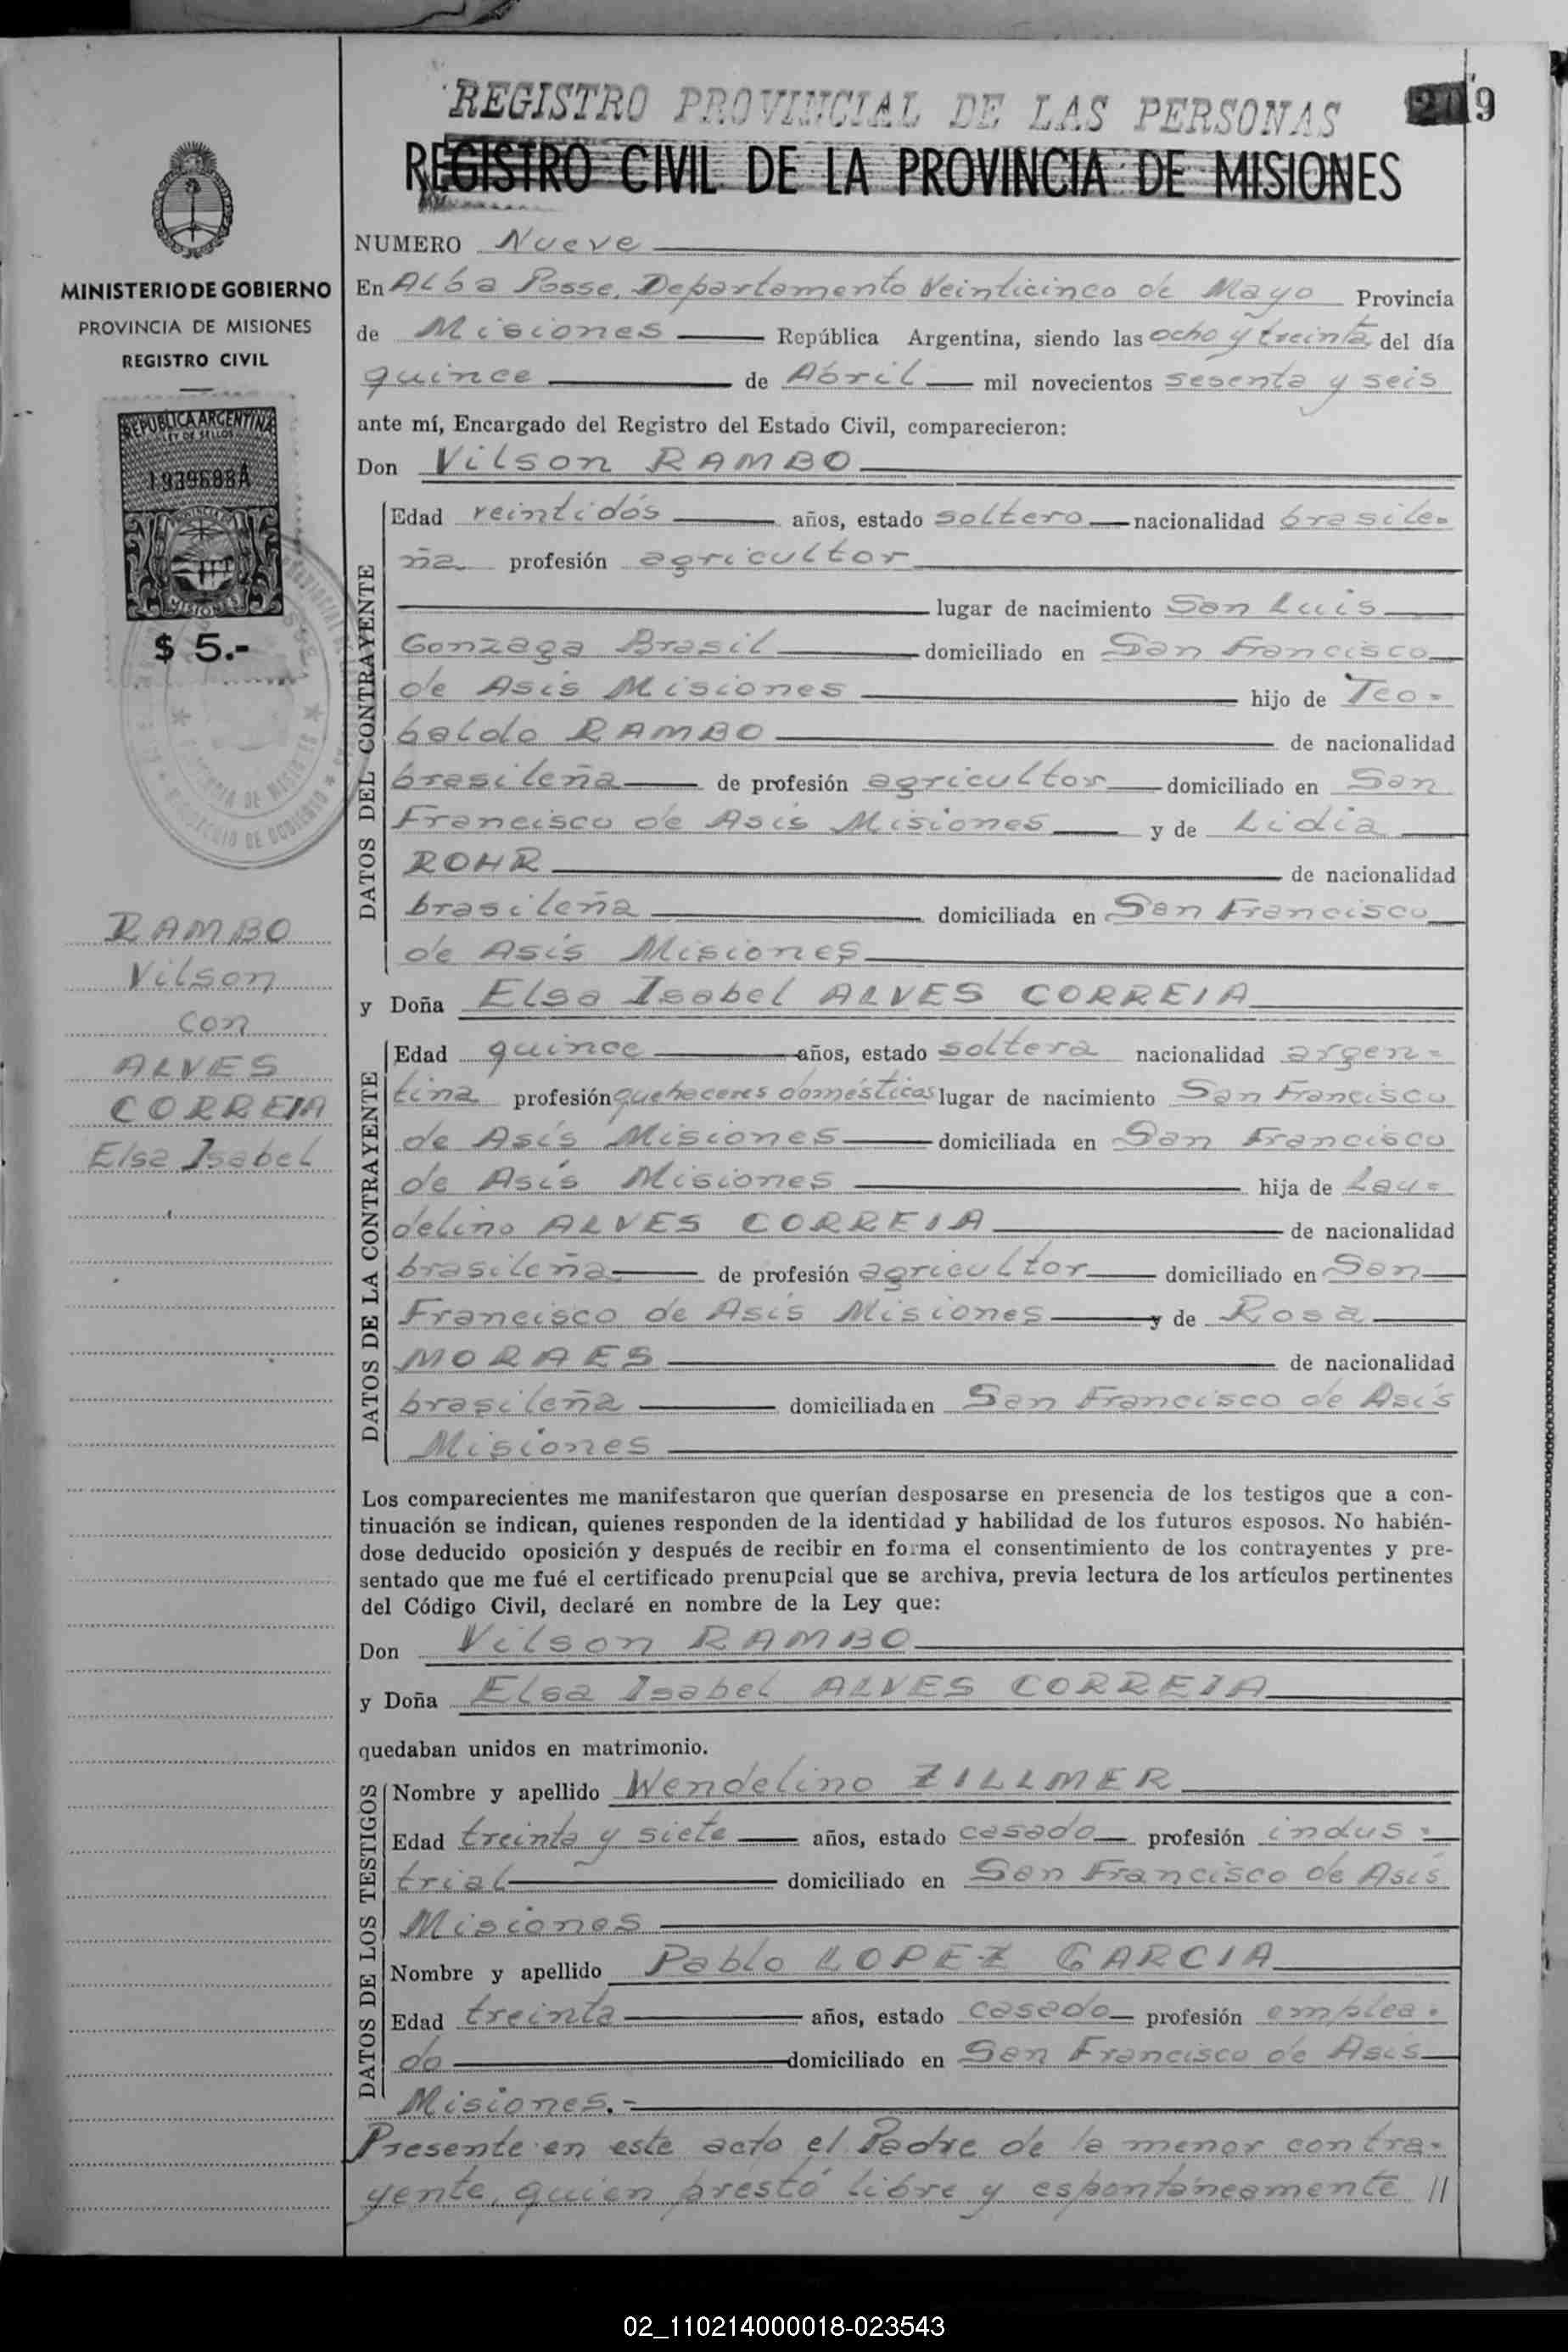 REGISTRO PROVINCIAL DE LAS PERSONAS
9
REGISTRO CIVIL DE LA PROVINCIA DE MISIONES
MINISTERIO DE GOBIERNO
PROVINCIA DE MISIONES
REGISTRO CIVIL
REPUBLICA ARGENTINA
LEY DE SELLOS
MISIONES
$ 5.-
RAMBO
Vilson
con
ALVES
CORREIA
Elsa Isabel
NUMERO Nueve
En Alba Posse, Departamento Veinticinco de Mayo Provincia
de Misiones República Argentina, siendo las ocho y treinta del día
quince de Abril mil novecientos sesenta y seis
ante mí, Encargado del Registro del Estado Civil, comparecieron:
Don Vilson RAMBO
DATOS DEL CONTRAYENTE
Edad veintidós años, estado soltero nacionalidad brasile-
ña profesión agricultor
lugar de nacimiento San Luis
Gonzaga Brasil domiciliado en San Francisco
de Asís Misiones hijo de Teo-
baldo RAMBO de nacionalidad
brasileña de profesión agricultor domiciliado en San
Francisco de Asís Misiones y de Lidia
ROHR de nacionalidad
brasileña domiciliada en San Francisco
de Asís Misiones
y Doña Elsa Isabel ALVES CORREIA
DATOS DE LA CONTRAYENTE
Edad quince años, estado soltera nacionalidad argen-
tina profesión quehaceres domésticos lugar de nacimiento San Francisco
de Asís Misiones domiciliada en San Francisco
de Asís Misiones hija de Lau-
delino ALVES CORREIA de nacionalidad
brasileña de profesión agricultor domiciliado en San
Francisco de Asís Misiones y de Rosa
MORAES de nacionalidad
brasileña domiciliada en San Francisco de Asís
Misiones
Los comparecientes me manifestaron que querían desposarse en presencia de los testigos que a con-
tinuación se indican, quienes responden de la identidad y habilidad de los futuros esposos. No habién-
dose deducido oposición y después de recibir en forma el consentimiento de los contrayentes y pre-
sentado que me fué el certificado prenupcial que se archiva, previa lectura de los artículos pertinentes
del Código Civil, declaré en nombre de la Ley que:
Don Vilson RAMBO
y Doña Elsa Isabel ALVES CORREIA
quedaban unidos en matrimonio.
DATOS DE LOS TESTIGOS
Nombre y apellido Wendelino ZILLMER
Edad treinta y siete años, estado casado profesión indus-
trial domiciliado en San Francisco de Asís
Misiones
Nombre y apellido Pablo LOPEZ GARCIA
Edad treinta años, estado casado profesión emplea-
do domiciliado en San Francisco de Asís
Misiones.-
Presente en este acto el Padre de la menor contra-
yente, quien prestó libre y espontáneamente //
02_110214000018-023543